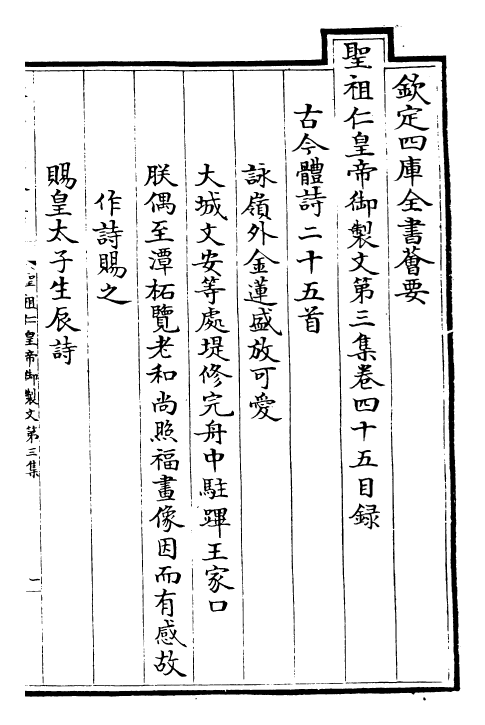 欽定四庫全書薈要
聖祖仁皇帝御製文第三集卷四十五目録
古今體詩二十五首
詠嶺外金蓮盛放可愛
大城文安等處堤修完舟中駐蹕王家口
朕偶至潭柘覽老和尚照福畫像因而有感故
作詩賜之
賜皇太子生辰詩
皇祖仁皇帝御製文第三集
一